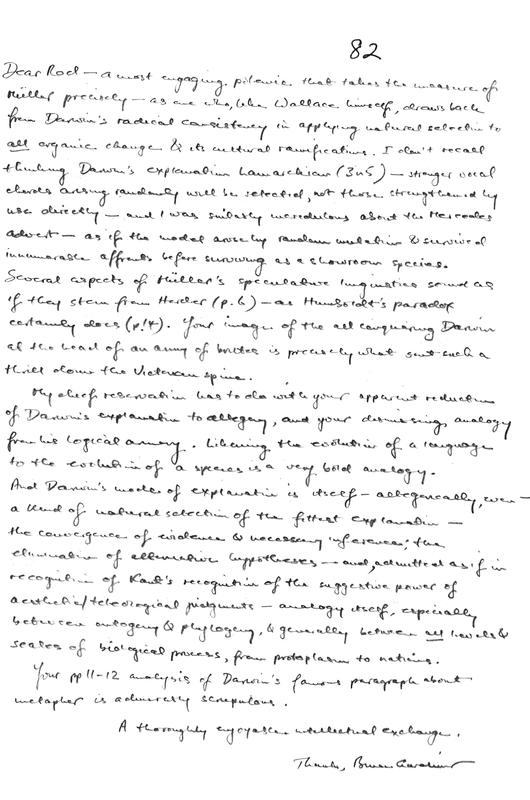 82
Dear Rod — a most engaging polemic that takes the measure of
Müller precisely — as one who, like Wallace himself, draws back
from Darwin's radical consistency in applying natural selection to
all organic change & its cultural ramifications. I don't recall
thinking Darwin's explanation Lamarckian (3n5) — stronger vocal
chords arising randomly will be selected, not those strengthened by
use directly — and I was similarly incredulous about the Mercedes
advert — as if the model arose by random mutation & survived
innumerable affronts before surviving as a showroom species.
Several aspects of Müller's speculative linguistics sound as
if they stem from Herder (p.6) — as Humboldt's paradox
certainly does (p.14). Your image of the all conquering Darwin
at the head of an army of brutes is precisely what sent such a
thrill down the Victorian spine.
My chief reservation has to do with your apparent reduction
of Darwin's explanation to allegory, and your dismissing analogy
from his logical armory. Likening the evolution of a language
to the evolution of a species is a very bold analogy.
And Darwin's mode of explanation is itself — allegorically, even —
a kind of natural selection of the fittest explanation —
the convergence of evidence & necessary inferences; the
elimination of alternative hypotheses — and, admitted as if in
recognition of Kant's recognition of the suggestive power of
aesthetic/teleological judgments — analogy itself, especially
between ontogeny & phylogeny, & generally between all levels &
scales of biological process, from protoplasm to nations.
Your pp 11-12 analysis of Darwin's famous paragraph about
metaphor is admirably scrupulous.
A thoroughly enjoyable intellectual exchange.
Thanks,